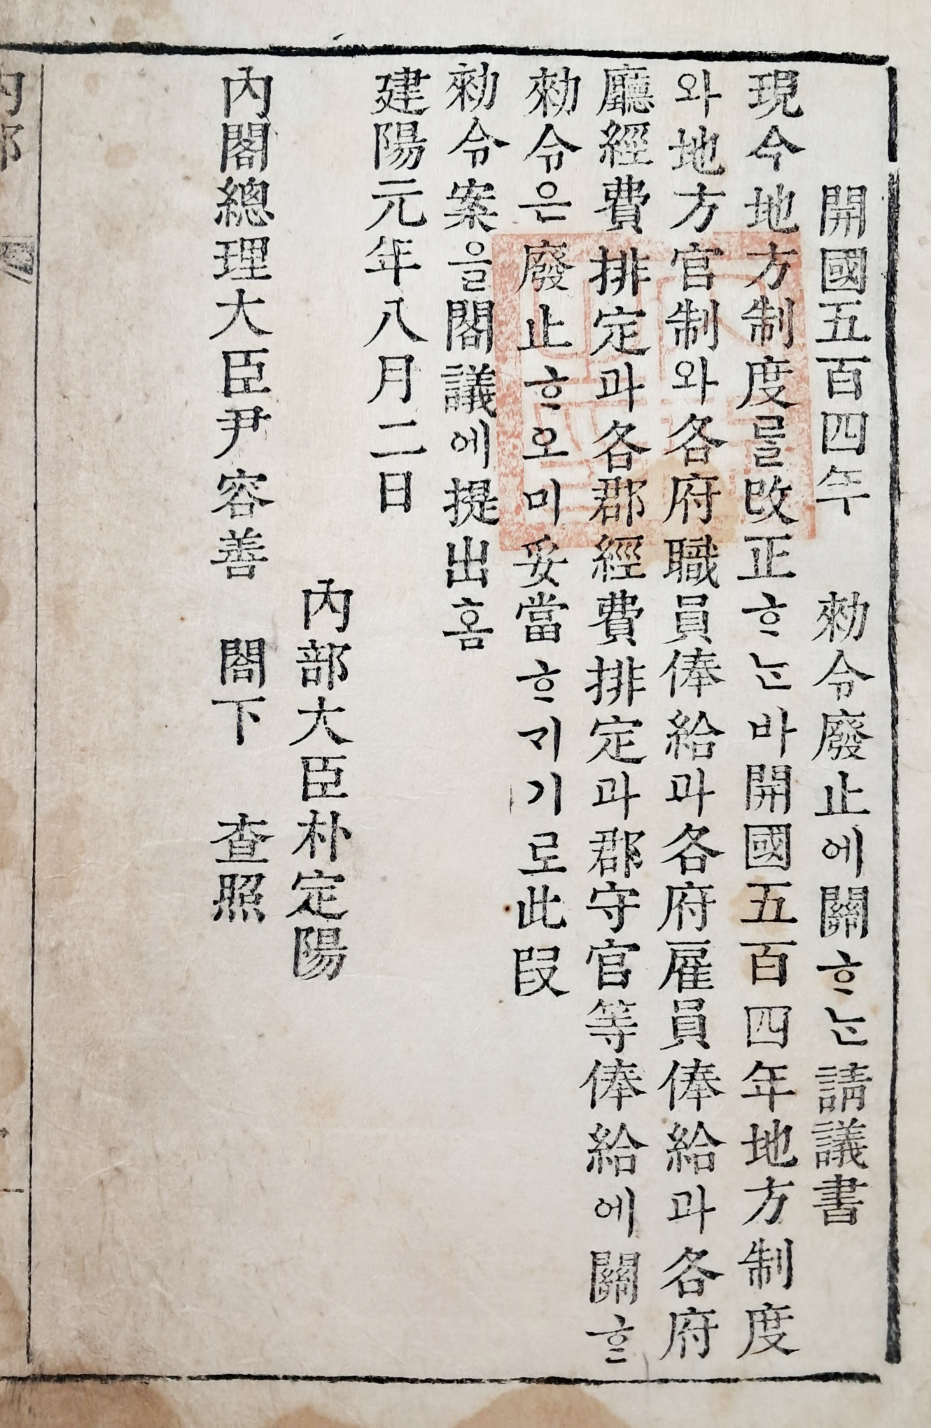 開國五百四年 勅令廢止에關ᄒᆞᄂᆞᆫ請議書
現今地方制度를改正ᄒᆞᄂᆞᆫ바開國五百四年地方制度
와地方官制와各府職員俸給과各府雇員俸給과各府
廳經費排定과各郡經費排定과郡守官等俸給에關ᄒᆞᆫ
勅令은廢止ᄒᆞ오미妥當ᄒᆞ기기로此段
勅令案을閣議에提出홈
建陽元年八月二日
內部大臣朴定陽
內閣總理大臣尹容善 閣下 查照
內部